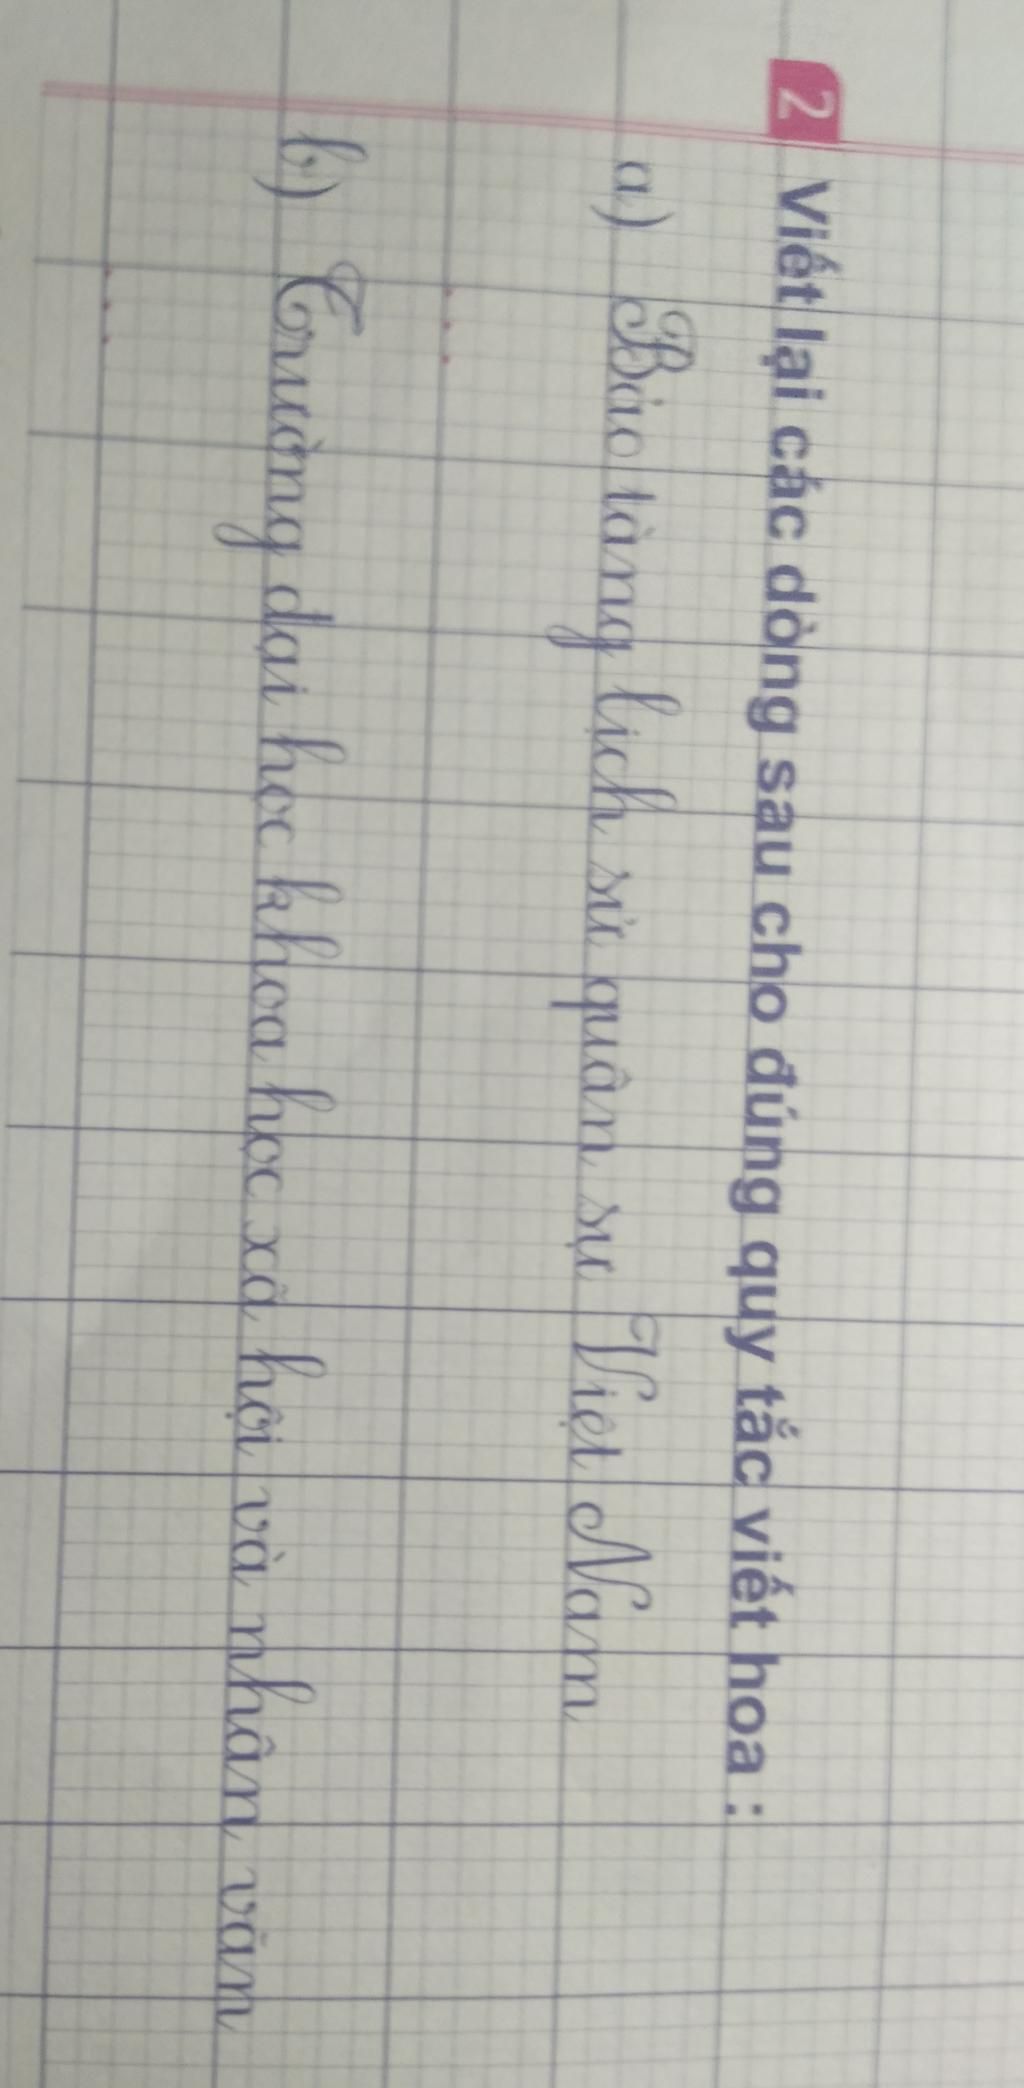 2 Viết lại các dòng sau cho đúng quy tắc viết hoa :
a) Bảo tàng lịch sử quân sự Việt Nam
b) Trường đại học khoa học xã hội và nhân văn